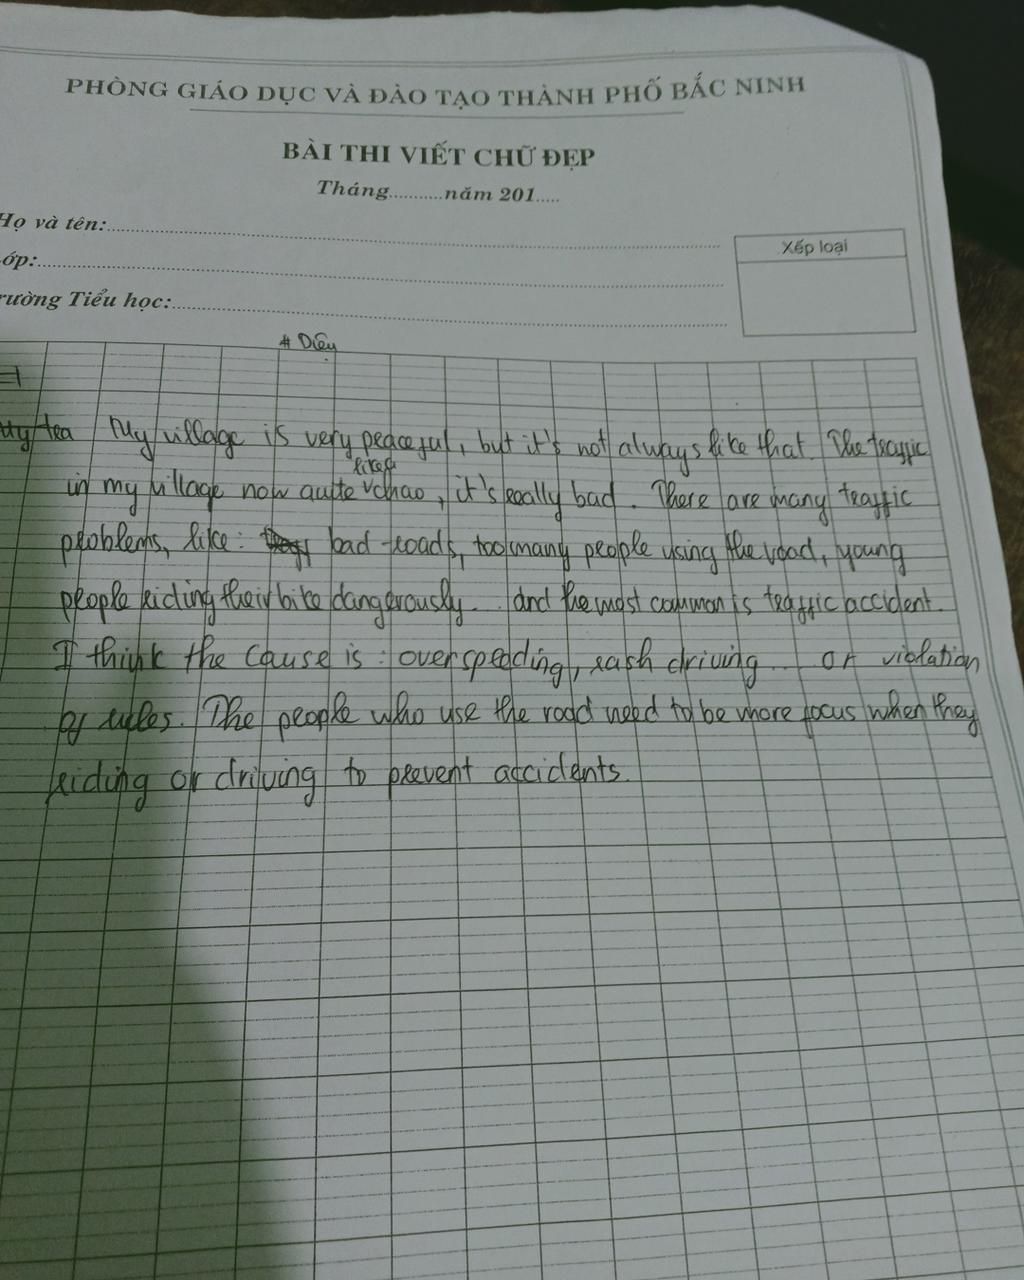 PHÒNG GIÁO DỤC VÀ ĐÀO TẠO THÀNH PHỐ BẮC NINH
BÀI THI VIẾT CHỮ ĐẸP
Tháng..........năm 201.....
Họ và tên:
Xếp loại
ớp:
rường Tiểu học:
# Diệu
My tra My village is very peaceful, but it's not always like that. The traffic
like
in my village now quite chao, it's really bad. There are many traffic
problems, like: bad roads, too many people using the road, young
people riding their bike dangerously... and the most common is traffic accident.
I think the cause is: over speeding, rash driving... or violation
of rules. The people who use the road need to be more focus when they
riding or driving to prevent accidents.